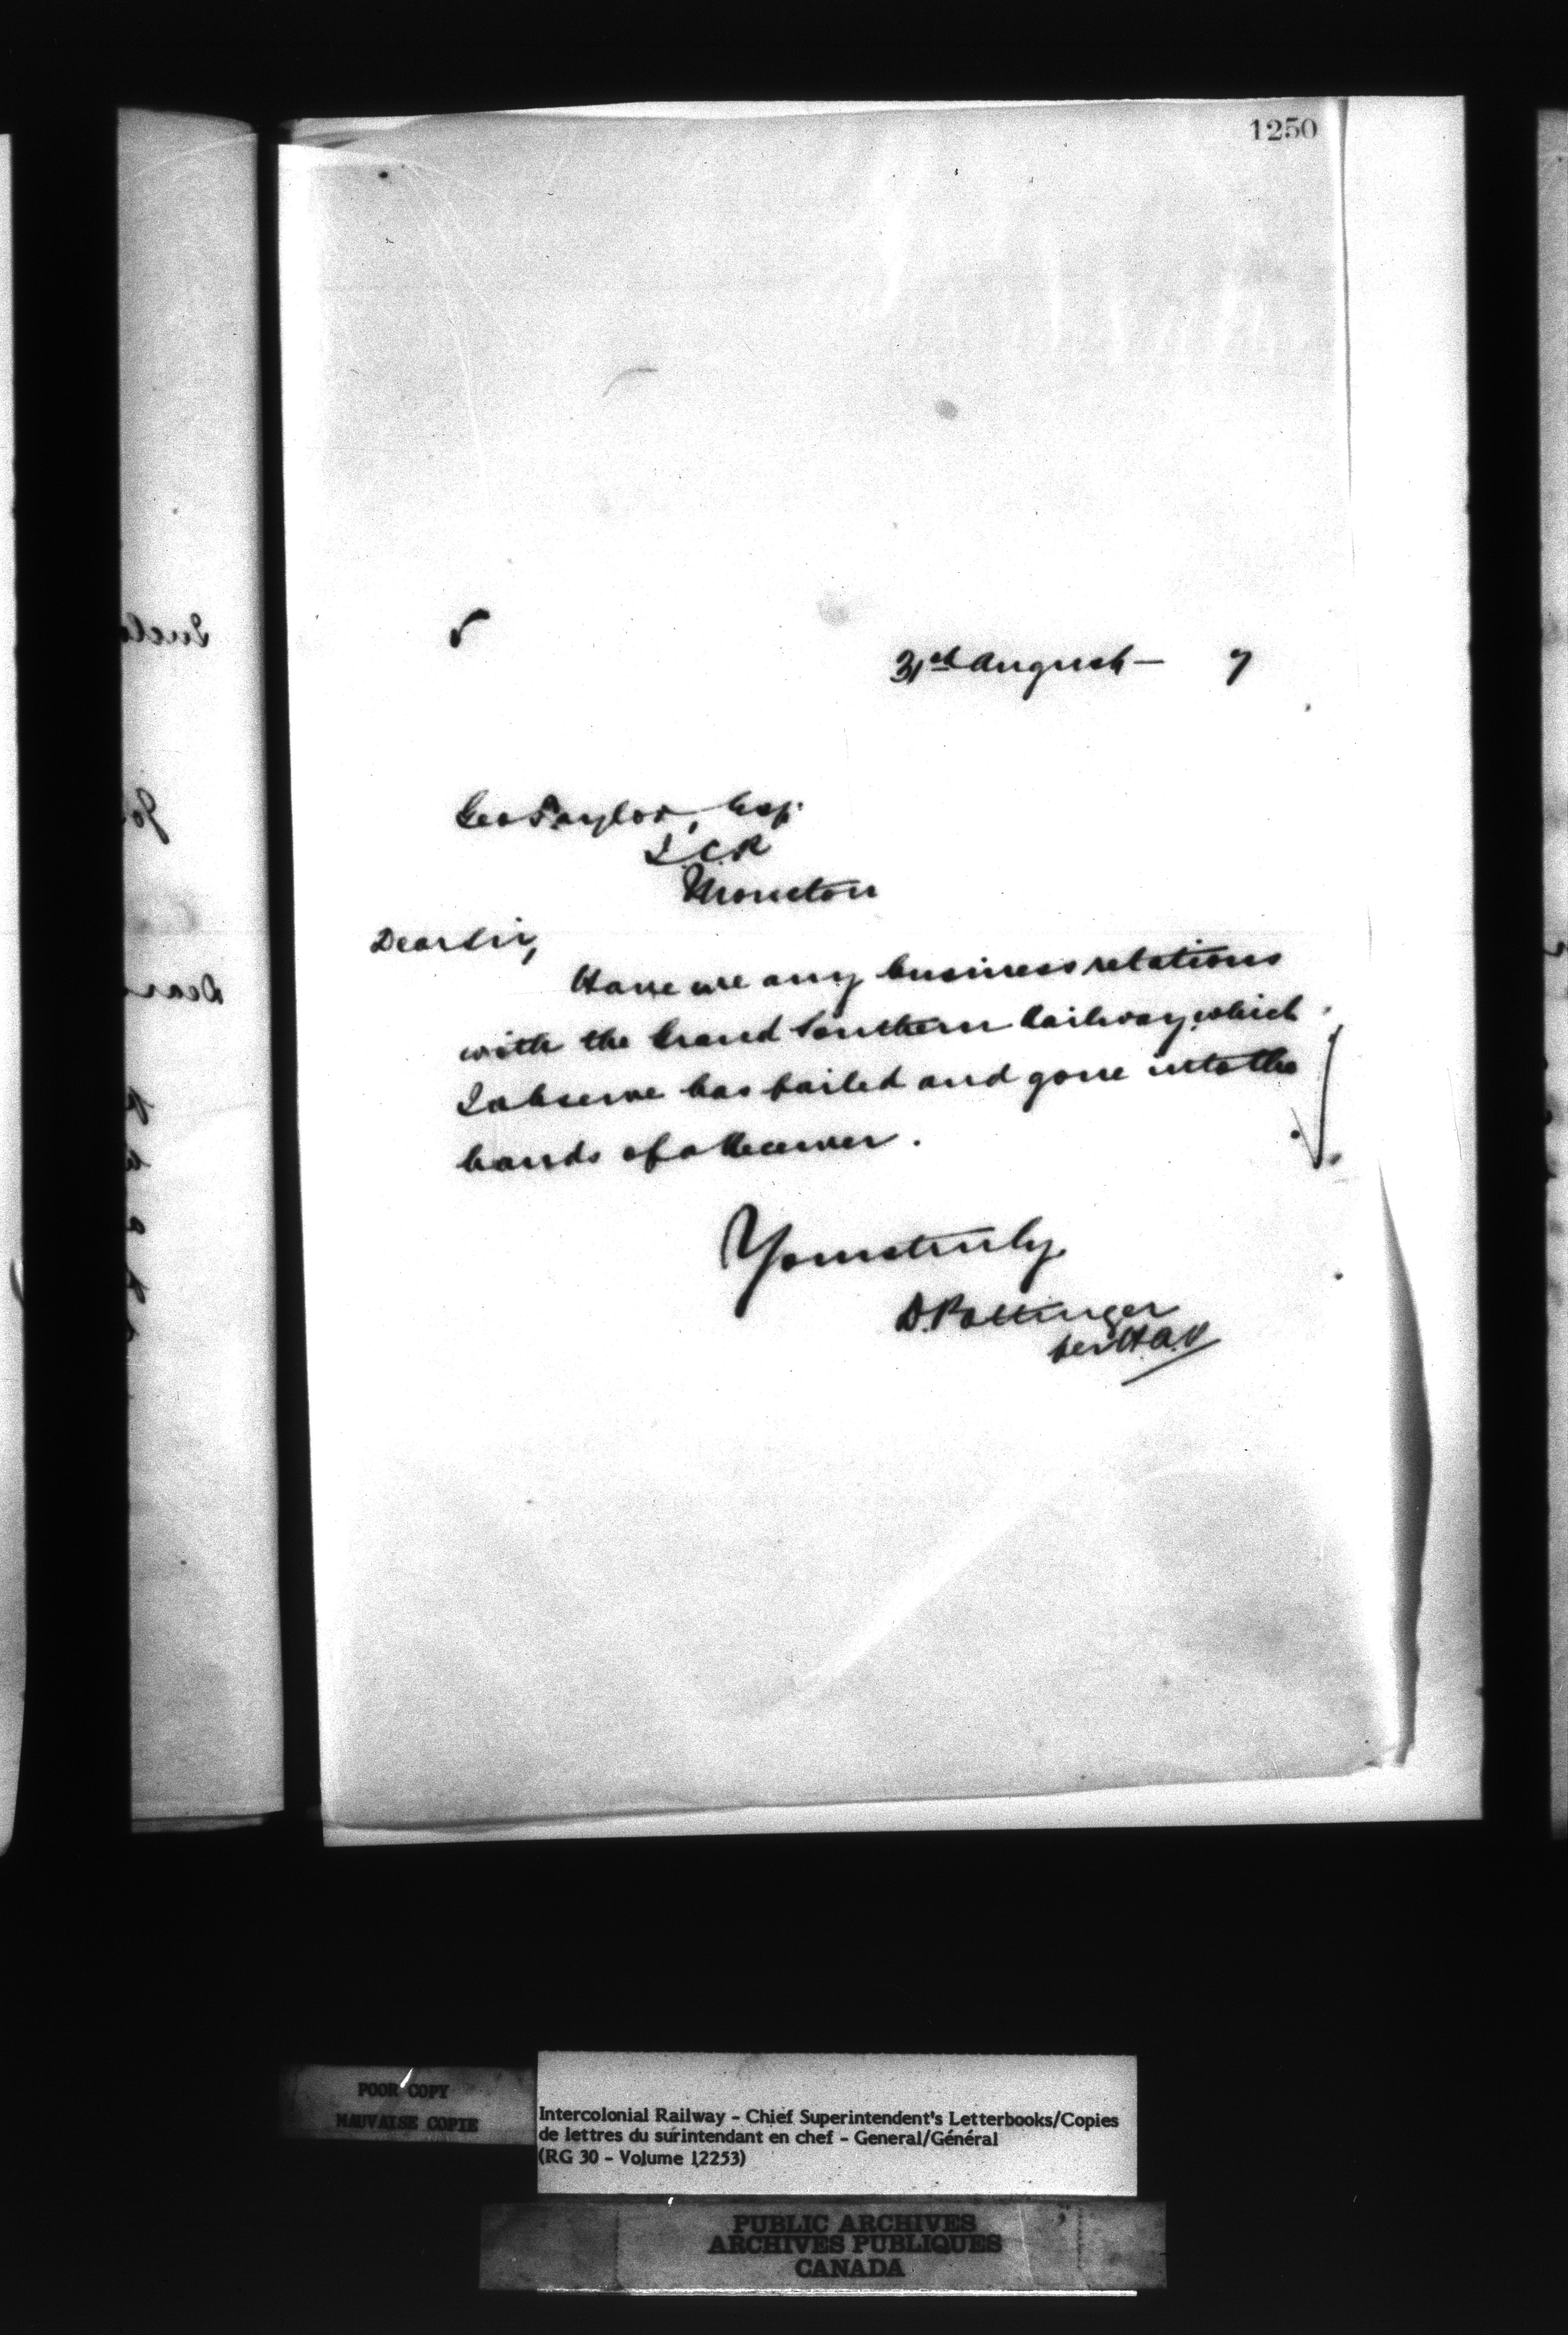 1250
31st August — 7
Geo Taylor, Esq.
I.C.R
Moncton
Dear Sir,
Have we any business relations
with the Grand Southern Railway, which
I observe has failed and gone into the
hands of a Receiver.
Yours truly
D. Pottinger
per H.A.
Inclo
Dear
POOR COPY
MAUVAISE COPIE
Intercolonial Railway - Chief Superintendent's Letterbooks/Copies
de lettres du surintendant en chef - General/Général
(RG 30 - Volume 12253)
PUBLIC ARCHIVES
ARCHIVES PUBLIQUES
CANADA